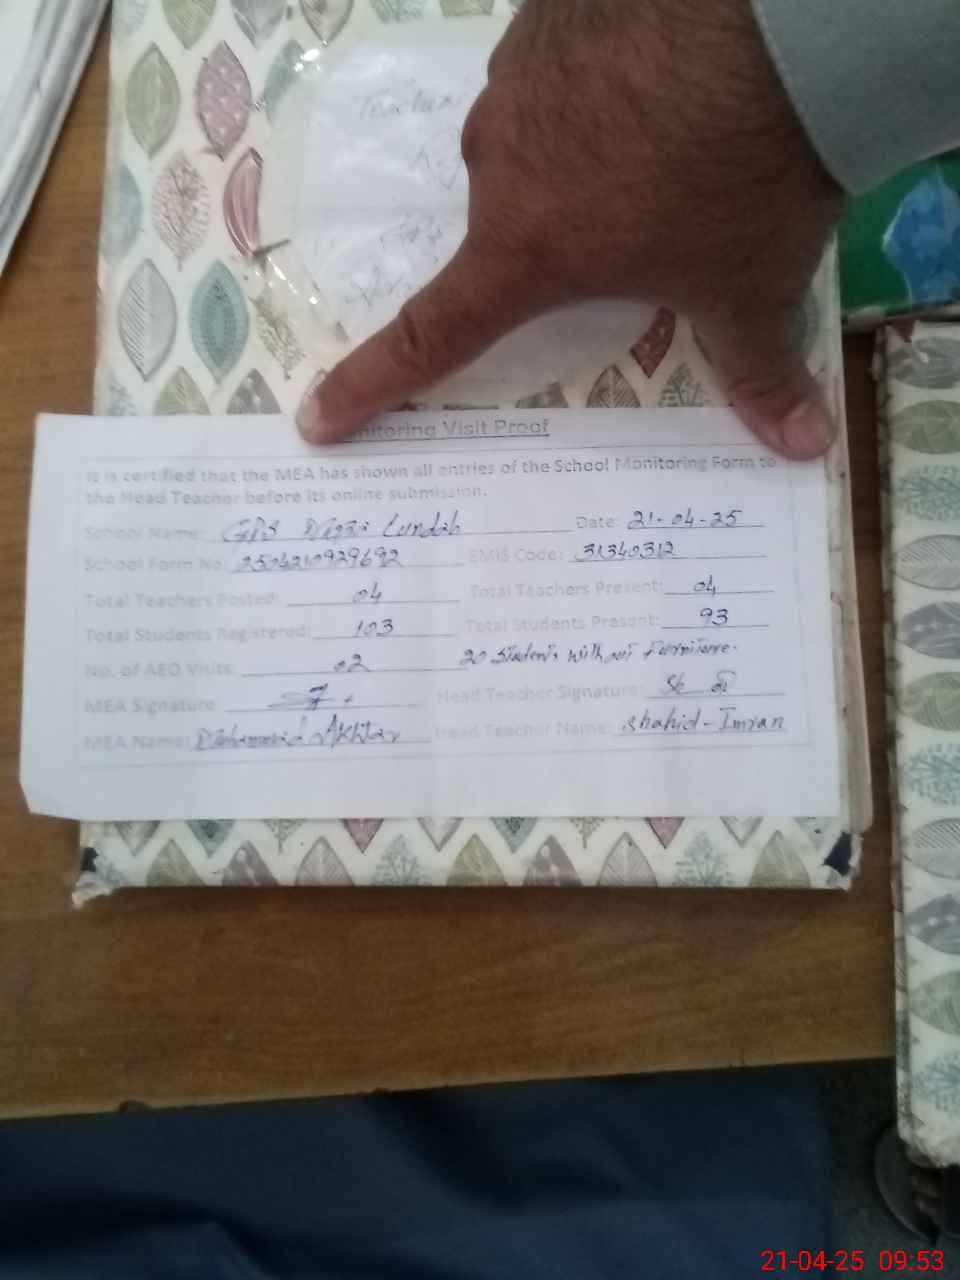 Teachers
nitoring Visit Proof
It is certified that the MEA has shown all entries of the School Monitoring Form to
the Head Teacher before its online submission.
School Name: GPS Lundah Date: 21-04-25
School Form No. 2504210929692 EMIS Code: 31340312
Total Teachers Posted: 04 Total Teachers Present: 04
Total Students Registered: 103 Total Students Present: 93
No. of AEO Visits: 02 20 Students without furniture.
MEA Signature Head Teacher Signature:
MEA Name: Muhammad Akhtar Head Teacher Name: Shahid-Imran
21-04-25 09:53